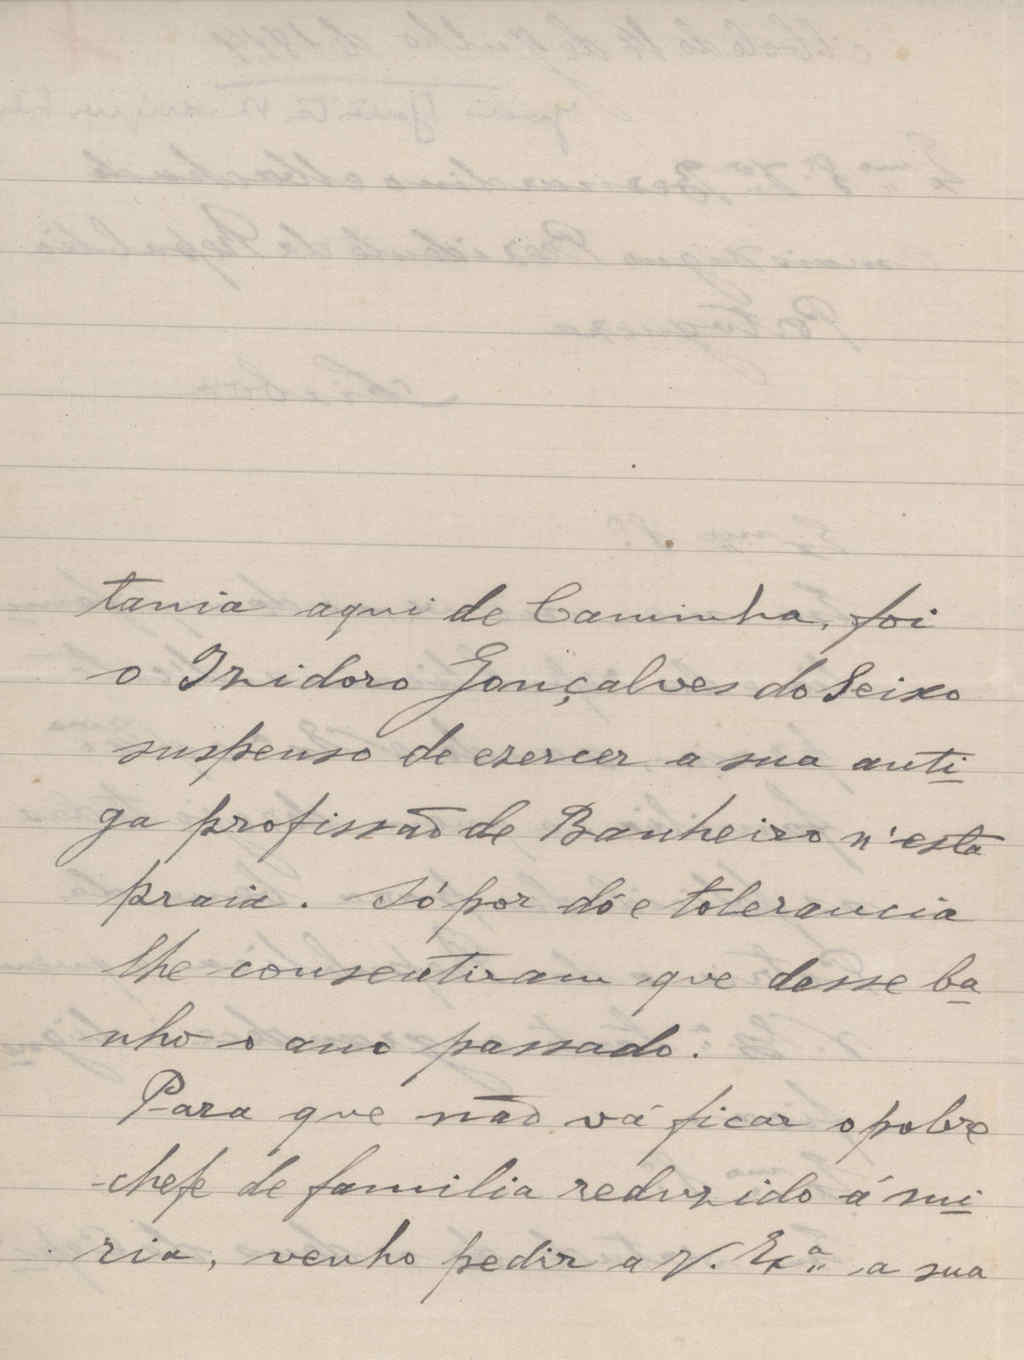 tania aqui de Caminha, foi
o Izidoro Gonçalves do Seixo
suspenso de exercer a sua anti
ga profissão de Banheiro n'esta
praia. Só por dó e tolerancia
lhe consentiram que desse ba
nho o ano passado.
Para que não vá ficar o pobre
chefe de familia reduzido á mi
ria, venho pedir a V. Exª. a sua